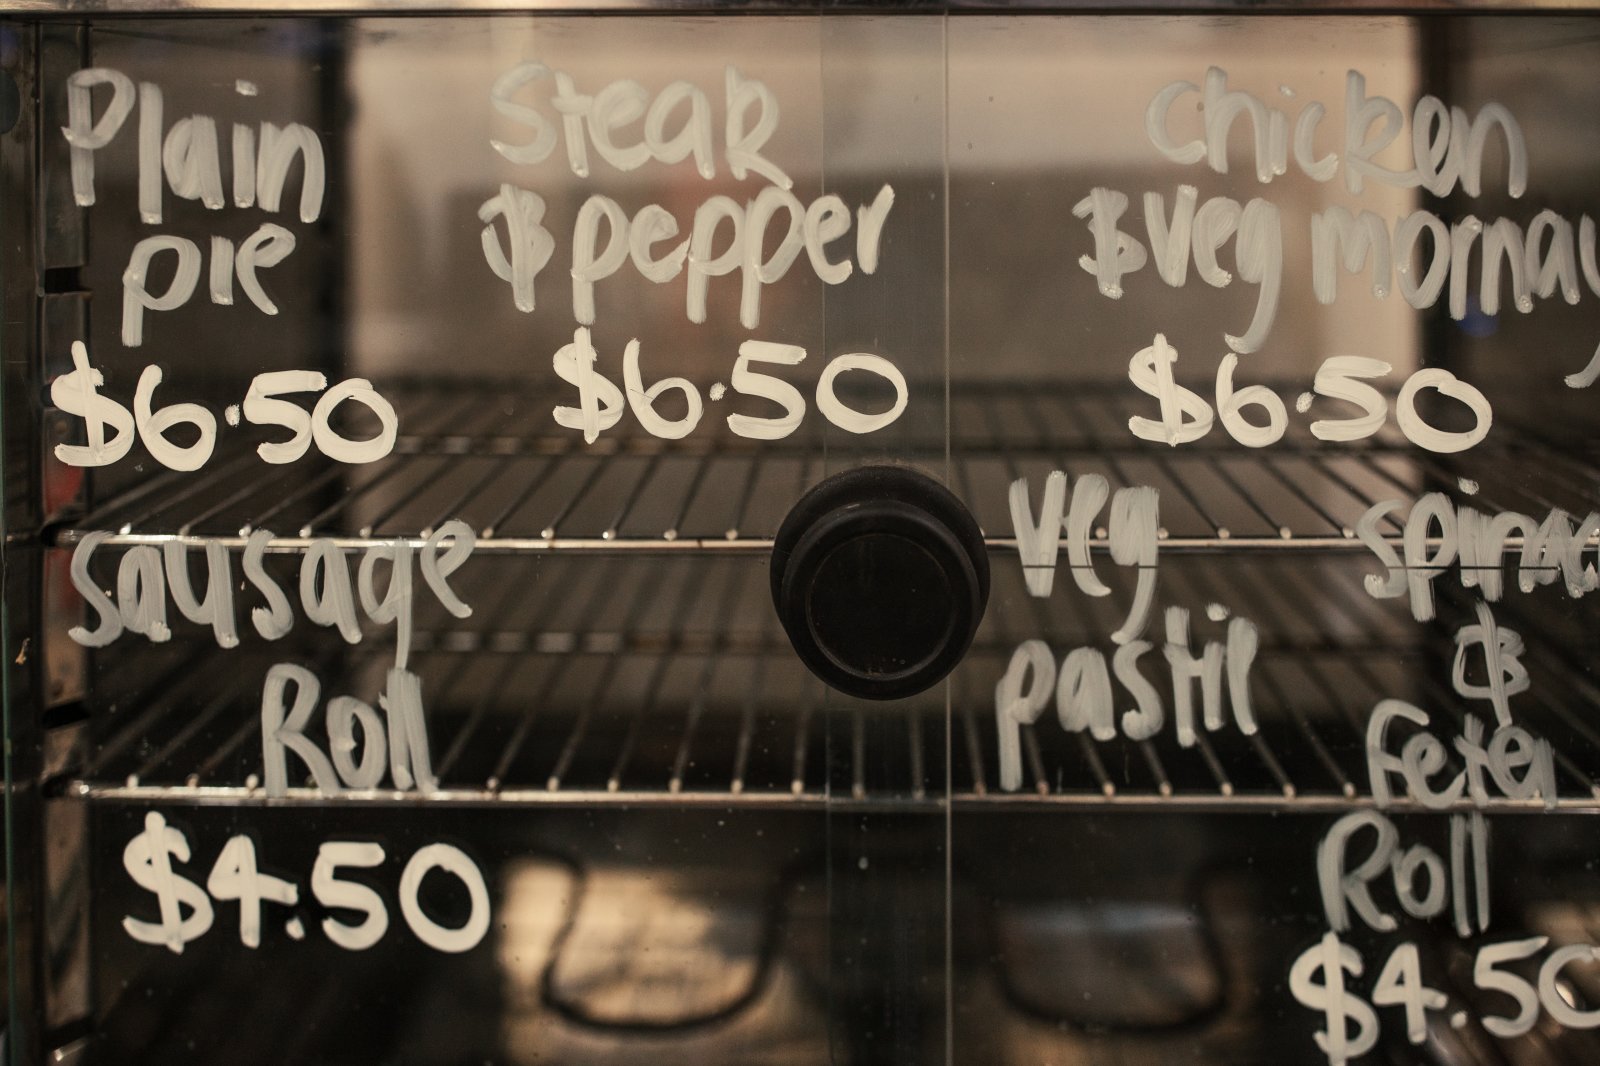 Plain
pie
$6.50
Steak
& pepper
$6.50
chicken
& Veg mornay
$6.50
sausage
Roll
$4.50
Veg
pastil
spinac
&
Feta
Roll
$4.50